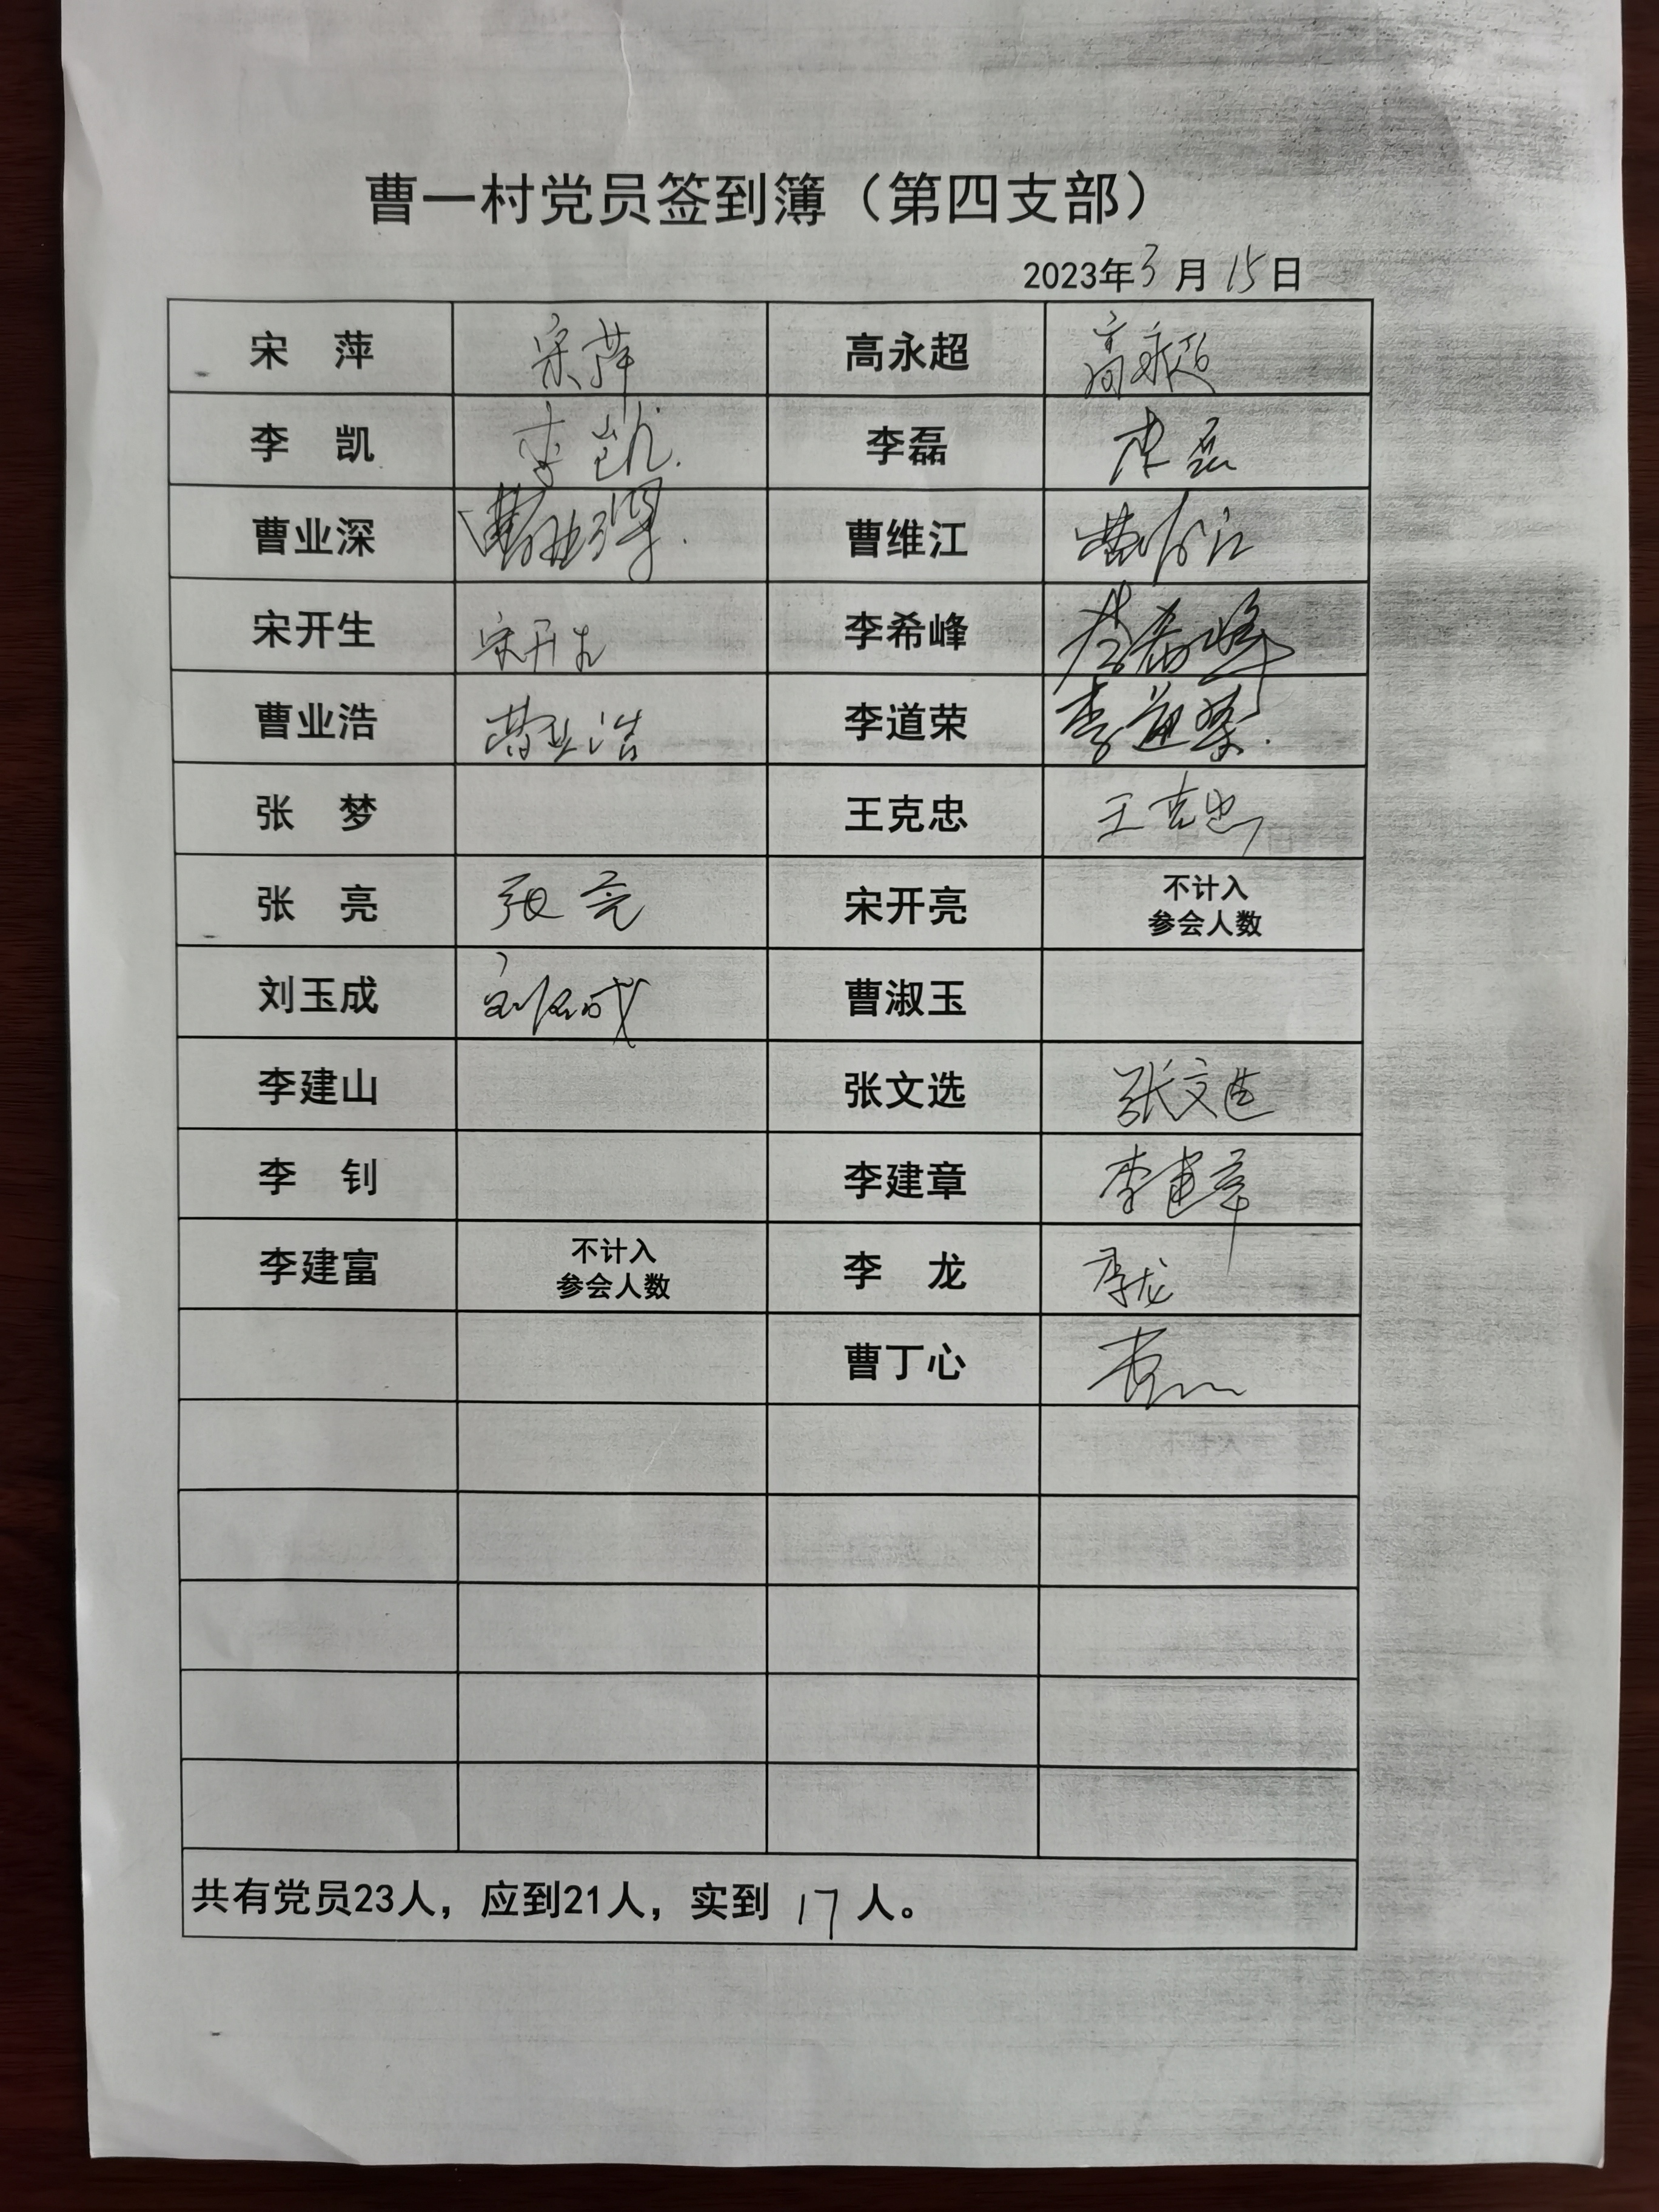 曹一村党员签到簿（第四支部）
2023年3月15日
宋 萍 宋萍 高永超 高永超
李 凯 李凯. 李磊 李磊
曹业深 曹业深. 曹维江 曹维江
宋开生 宋开生 李希峰 李希峰
曹业浩 曹业浩 李道荣 李道荣.
张 梦 王克忠 王克忠
张 亮 张亮 宋开亮 不计入
参会人数
刘玉成 刘玉成 曹淑玉
李建山 张文选 张文选
李 钊 李建章 李建章
李建富 不计入
参会人数 李 龙 李龙
曹丁心
共有党员23人，应到21人，实到 17 人。